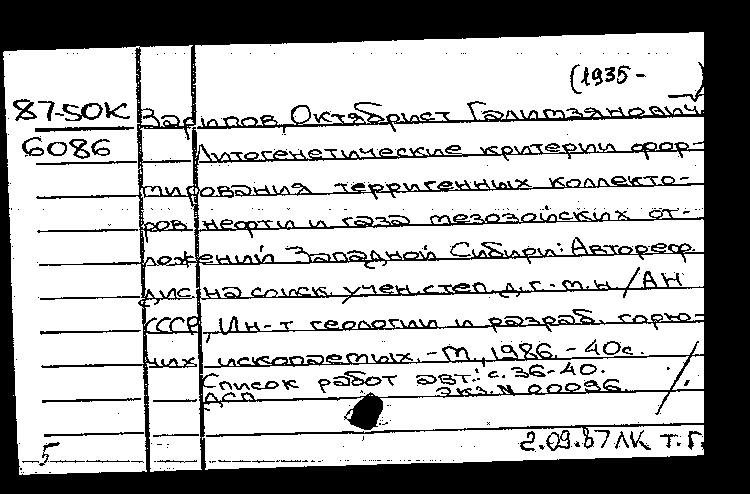 (1935-      )
87-50К Зарипов, Октябрист Галимзянович
6086 Литогенетические критерии фор-
мирования терригенных коллекто-
ров нефти и газа мезозойских от-
ложений Западной Сибири: Автореф.
дис. на соиск. учен. степ. д. г.-м. н. / АН
СССР, Ин-т геологии и разраб. горю-
чих ископаемых. - М, 1986. - 40с.
Список работ авт.: с. 36-40.
ДСП Экз. N 00096.
5 2.09.87 ЛК Т. Г.